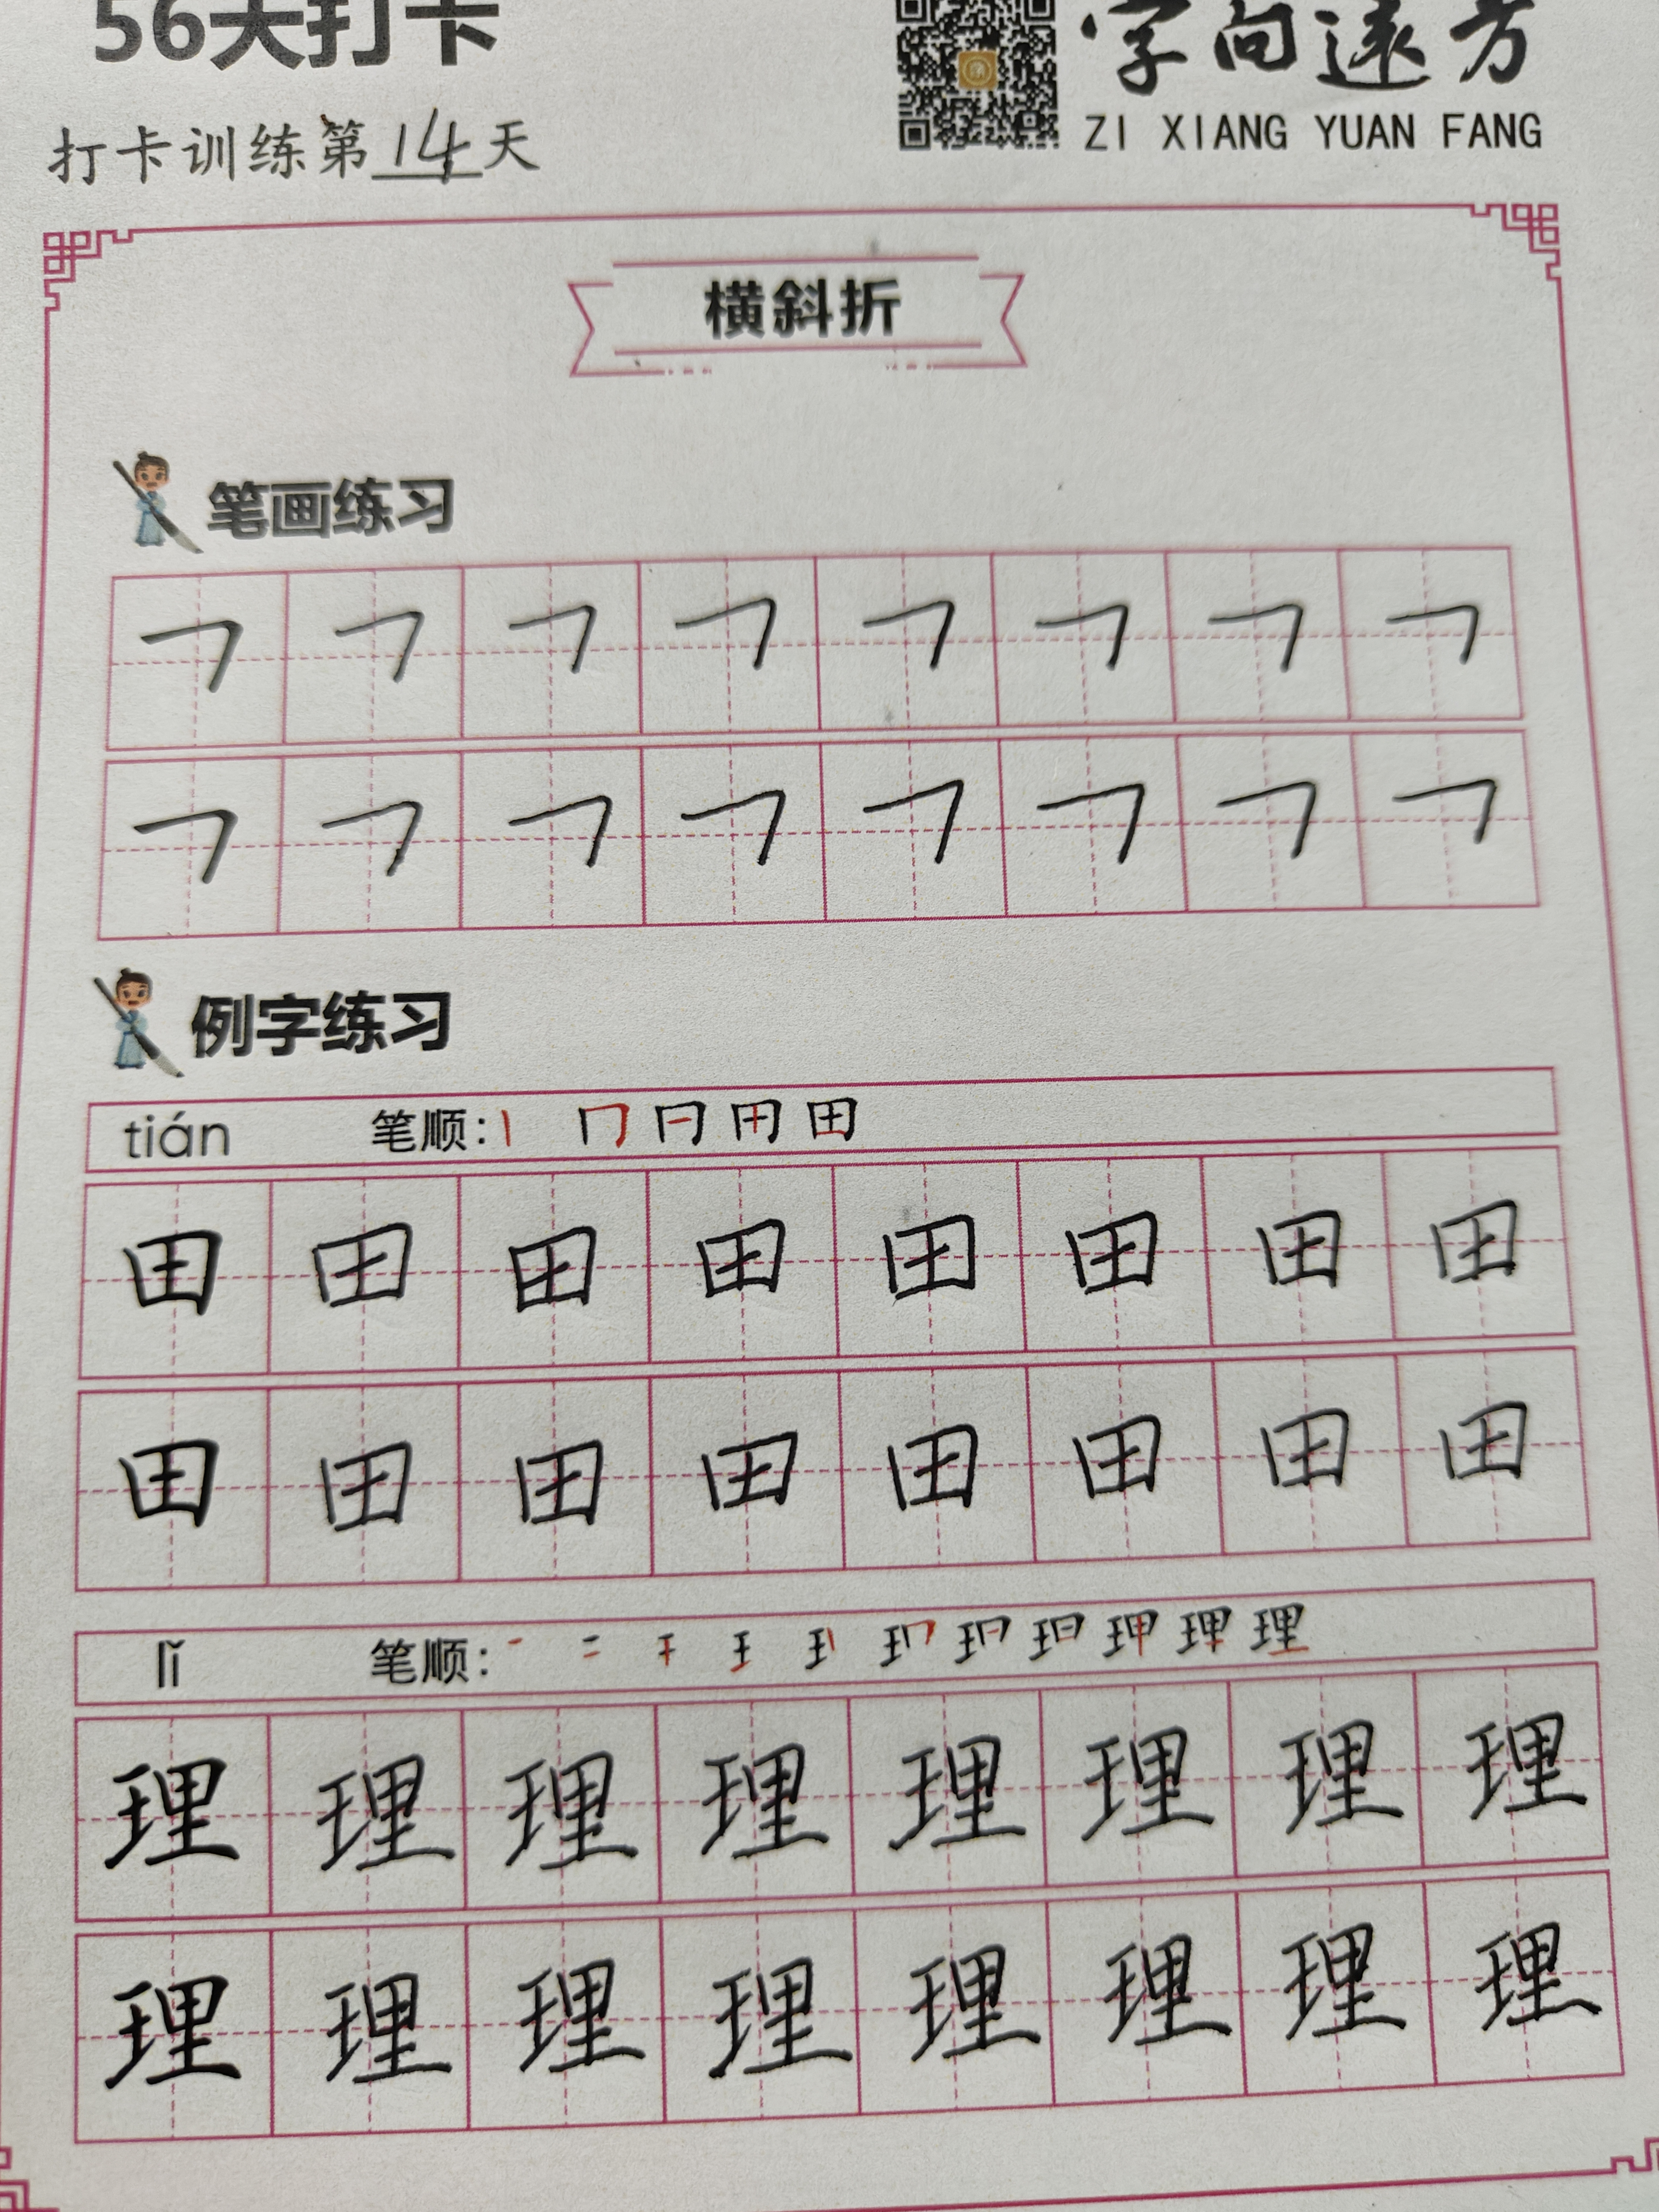 56天打卡
字向远方
ZI XIANG YUAN FANG
打卡训练第14天
横斜折
笔画练习
㇕ ㇕ ㇕ ㇕ ㇕ ㇕ ㇕ ㇕
㇕ ㇕ ㇕ ㇕ ㇕ ㇕ ㇕ ㇕
例字练习
tián 笔顺:
田 田 田 田 田 田 田 田
田 田 田 田 田 田 田 田
lǐ 笔顺:
理 理 理 理 理 理 理 理
理 理 理 理 理 理 理 理